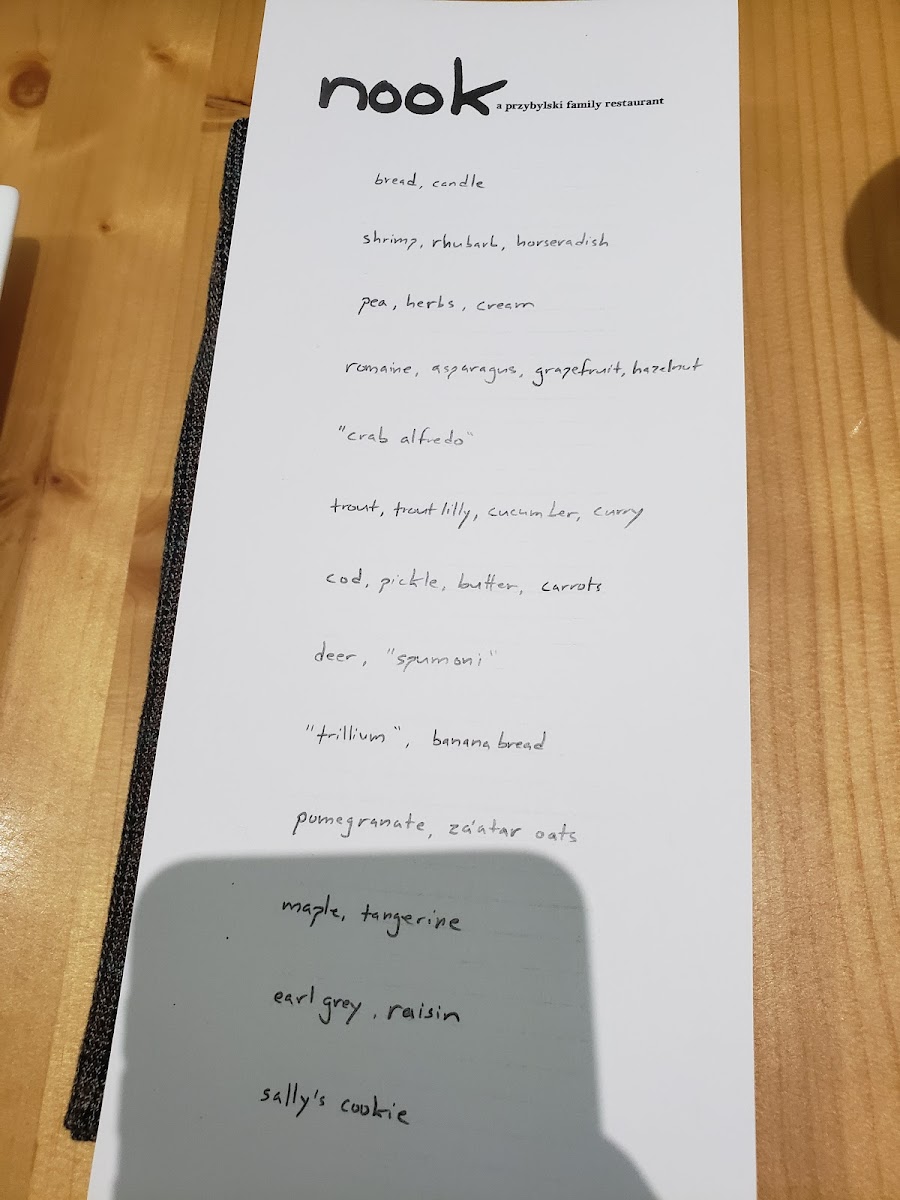 nook a przybylski family restaurant
bread, candle
shrimp, rhubarb, horseradish
pea, herbs, cream
romaine, asparagus, grapefruit, hazelnut
"crab alfredo"
trout, trout lilly, cucumber, curry
cod, pickle, butter, carrots
deer, "spumoni"
"trillium", banana bread
pomegranate, za'atar oats
maple, tangerine
earl grey, raisin
sally's cookie